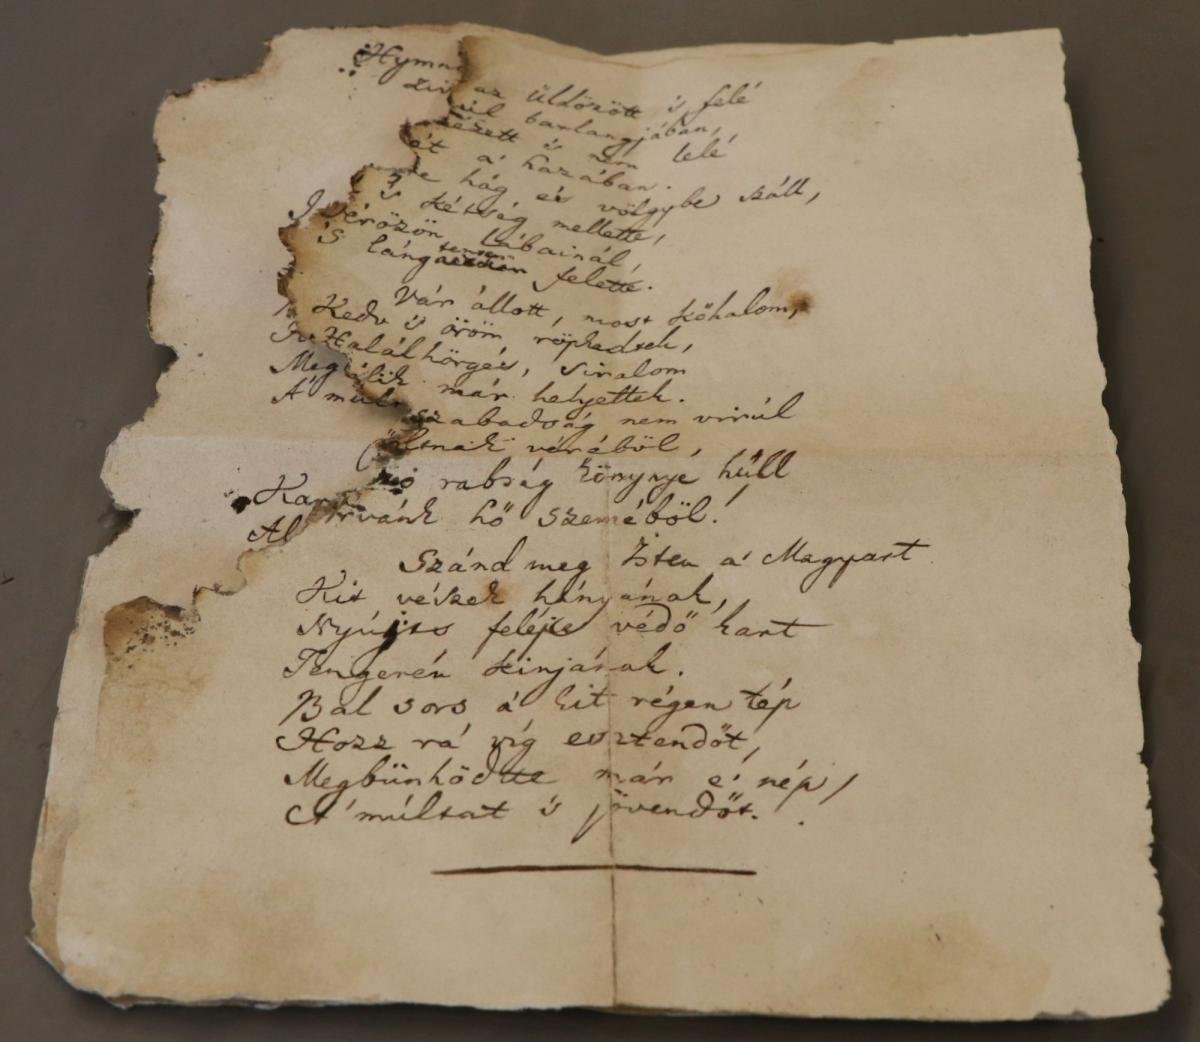 Hymn
az üldözött is felé
ül barlangjában,
ézett is nem lelé
ét a' hazában.
re hág és völgybe száll,
's kétség mellette,
Vérözön lábainál,
'S lángtenger felette.
Vár állott, most kőhalom,
Kedv 's öröm röpkedtek,
Halálhörgés, siralom
már helyettek.
szabadság nem virúl
ltnak véréből,
ó rabság könnye hűll
Árvánk hő szeméből!
Szánd meg Isten a' Magyart
Kit vészek hányának,
Nyújts feléje védő kart
Tengerén kinjának.
Bal sors a' kit régen tép
Hozz rá víg esztendőt,
Megbünhödte már e' nép,
A' múltat 's jövendőt.